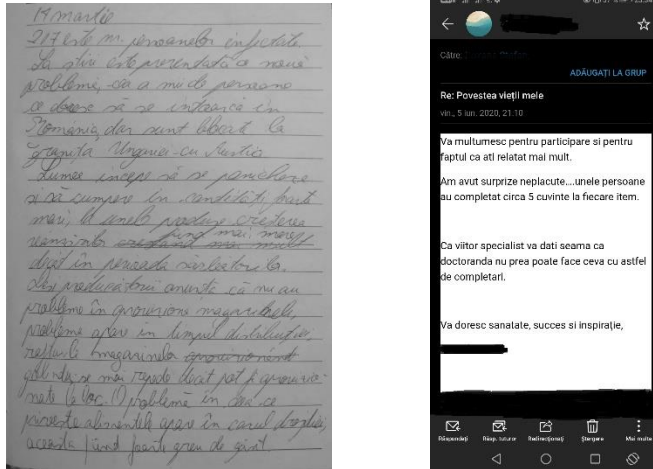 14 martie
217 este nr. persoanelor infectate
La știri este prezentată o nouă
problemă, cea a mii de persoane
ce doresc să se întoarcă în
România, dar sunt blocate la
granița Ungariei cu Austria
Lumea începe să se panicheze
și să cumpere în cantități foarte
mari, la unele produse creșterea
vânzărilor fiind mai mare
decât în perioada sărbătorilor.
Deși producătorii anunță că nu au
probleme în aprovizionarea magazinelor,
probleme apar în timpul distribuției,
rafturile magazinelor
golindu-se mai repede decât pot fi aprovizio-
nate la loc. O problemă în ceea ce
privește alimentele apare în cazul drojdiei,
aceasta fiind foarte greu de găsit
Către:
ADĂUGAȚI LA GRUP
Re: Povestea vieții mele
vin., 5 iun. 2020, 21:10
Va multumesc pentru participare si pentru
faptul ca ati relatat mai mult.
Am avut surprize neplacute....unele persoane
au completat circa 5 cuvinte la fiecare item.
Ca viitor specialist va dati seama ca
doctoranda nu prea poate face ceva cu astfel
de completari.
Va doresc sanatate, succes si inspirație,
Răspundeți Răsp. tuturor Redirecționați Ștergere Mai multe